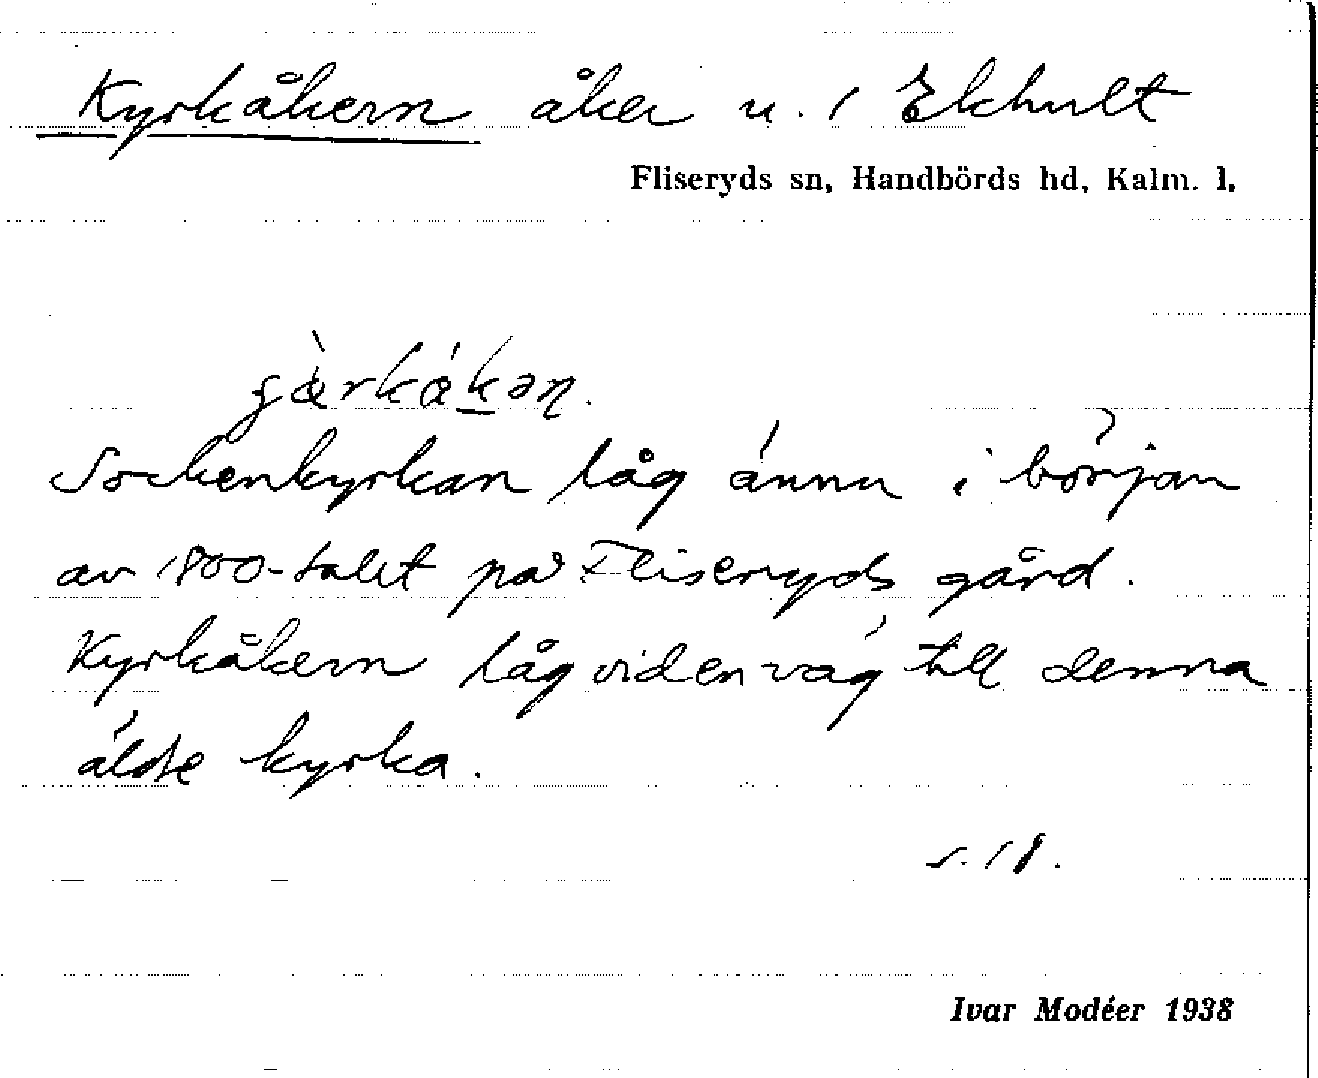 Kyrkåkern åker n. 1 Ekhult
Fliseryds sn, Handbörds hd, Kalm. l.
Sockenkyrkan låg ännu i början
av 1800-talet på Fliseryds gård.
Kyrkåkern låg vid en väg till denna
äldre kyrka.
s. 18.
Ivar Modéer 1938